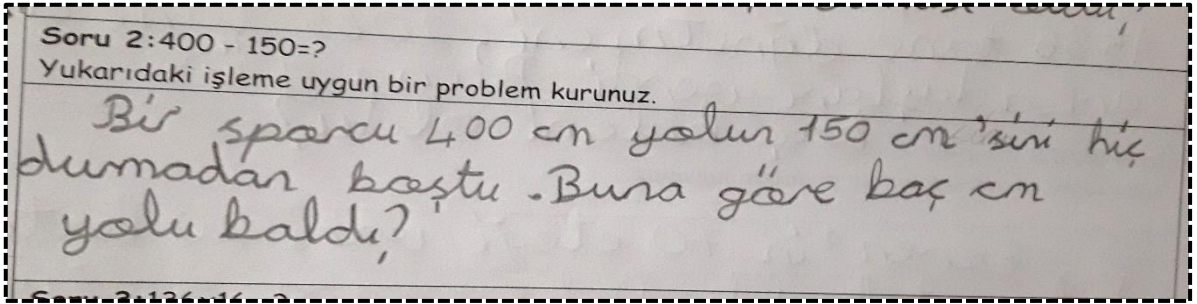 Soru 2:400 - 150=?
Yukarıdaki işleme uygun bir problem kurunuz.
Bir sporcu 400 cm yolun 150 cm'sini hiç
durmadan koştu. Buna göre kaç cm
yolu kaldı?